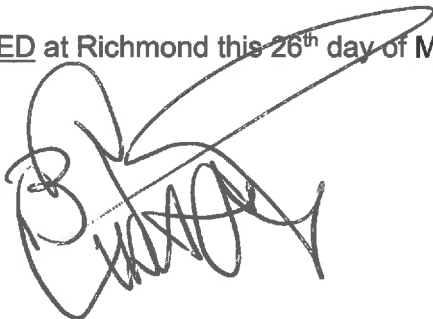 ED at Richmond this 26th day of M